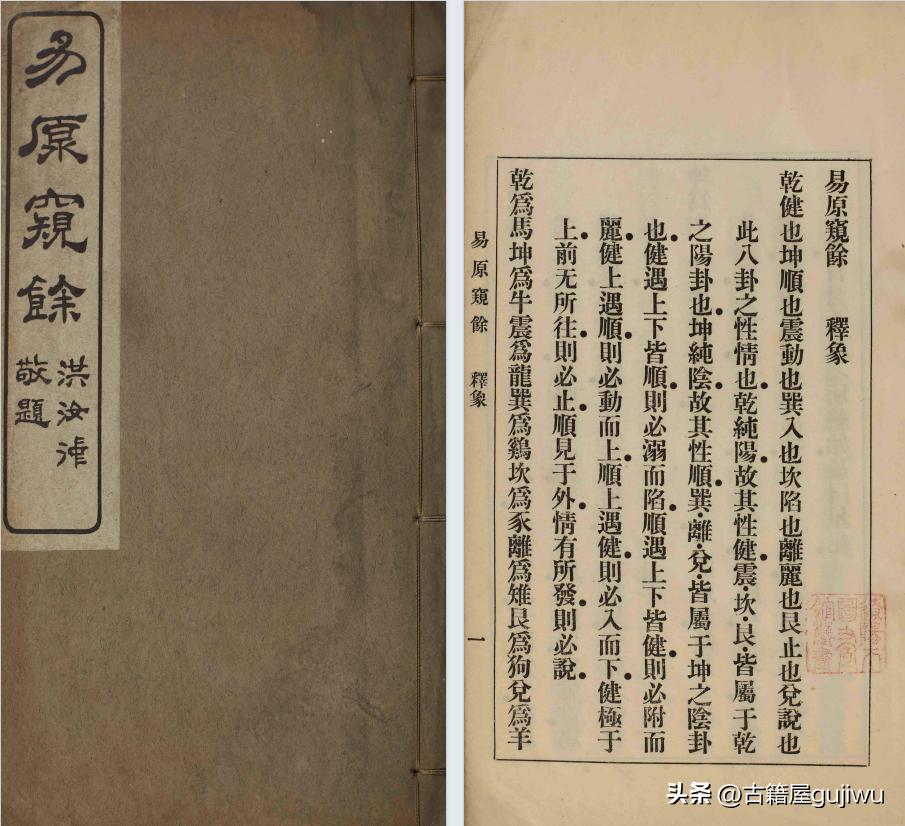 易原窺餘
洪汝
敬題
易原窺餘 釋象
乾健也坤順也震動也巽入也坎陷也離麗也艮止也兌說也
此八卦之性情也乾純陽故其性健震·坎·艮·皆屬于乾
之陽卦也坤純陰故其性順巽·離·兌·皆屬于坤之陰卦
也健遇上下皆順則必溺而陷順遇上下皆健則必附而
麗健上遇順則必動而上順上遇健則必入而下健極于
上前无所往則必止順見于外情有所發則必說
乾爲馬坤爲牛震爲龍巽爲鷄坎爲豕離爲雉艮爲狗兌爲羊
易原窺餘 釋象 一
头条 @古籍屋gujiwu